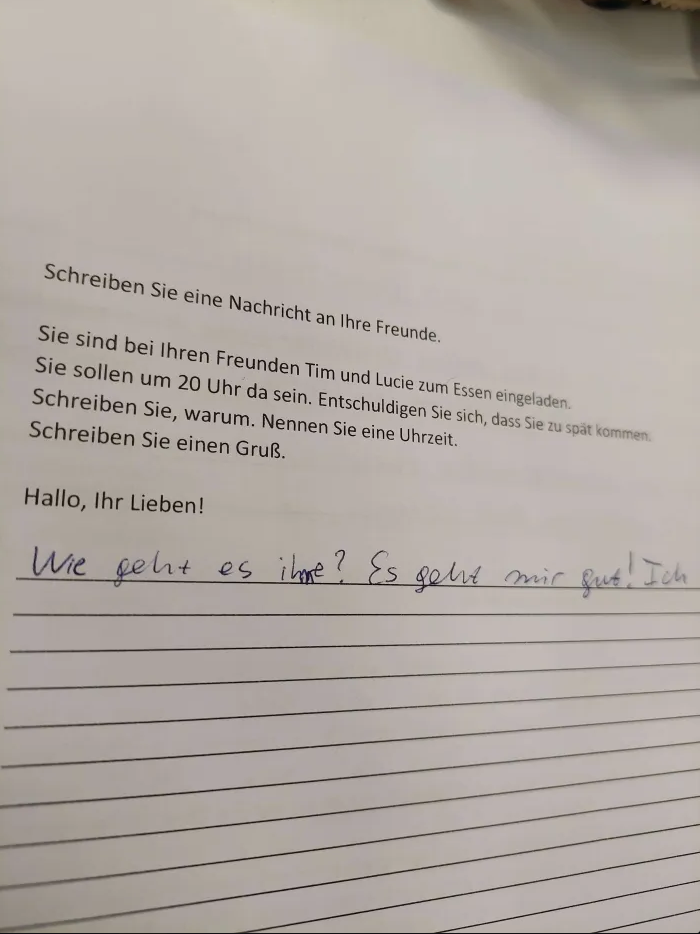 Schreiben Sie eine Nachricht an Ihre Freunde.
Sie sind bei Ihren Freunden Tim und Lucie zum Essen eingeladen.
Sie sollen um 20 Uhr da sein. Entschuldigen Sie sich, dass Sie zu spät kommen.
Schreiben Sie, warum. Nennen Sie eine Uhrzeit.
Schreiben Sie einen Gruß.
Hallo, Ihr Lieben!
Wie geht es ihne? Es geht mir gut! Ich